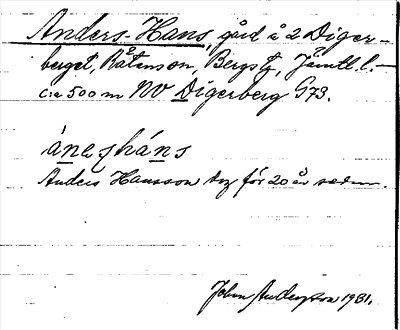 Anders-Hans, gård å 2 Diger-
berget, Råtanson, Bergs tg, Jämtl. l. –
c:a 500 m NV Digerberg G73.
áneʃháns
Anders Hansson tog för 20 år sedan.
John Anderson 1931.